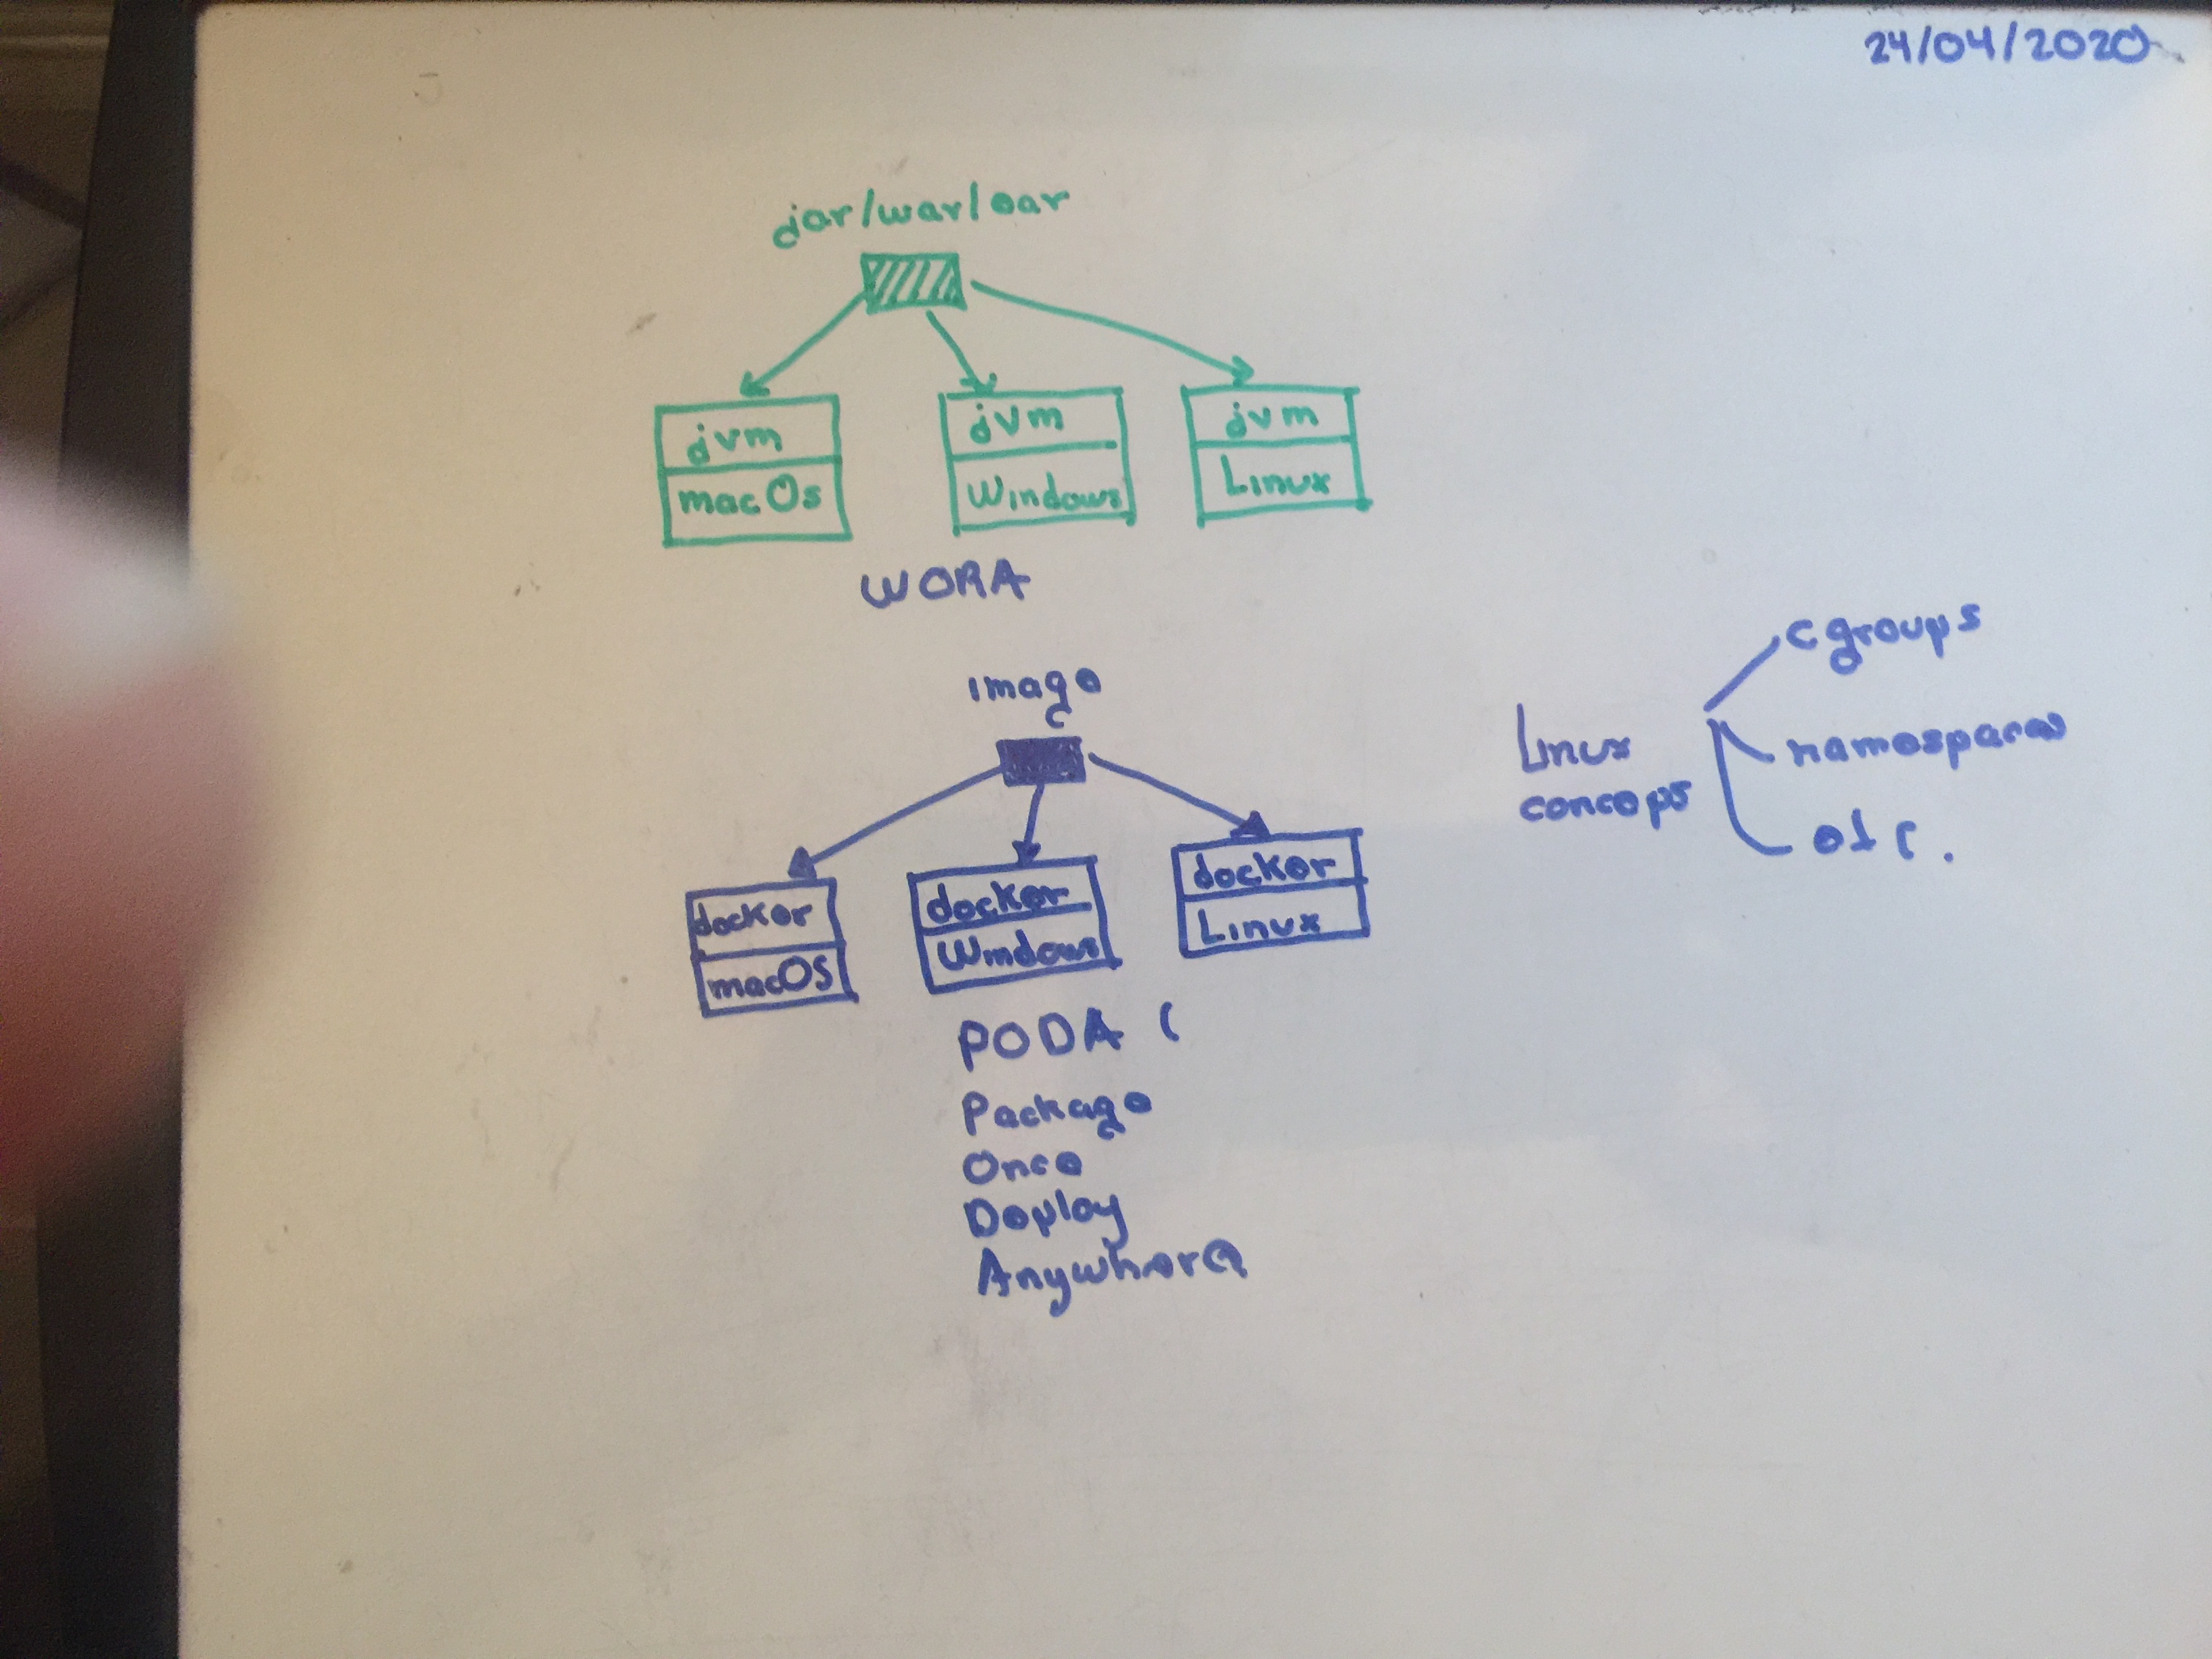 24/04/2020
jar/war/ear
jvm
macOs
jvm
Windows
jvm
Linux
WORA
image
docker
macOS
docker
Windows
docker
Linux
PODA (
Package
Once
Deploy
Anywhere
Linux
conceps
cgroups
namespaces
etc.